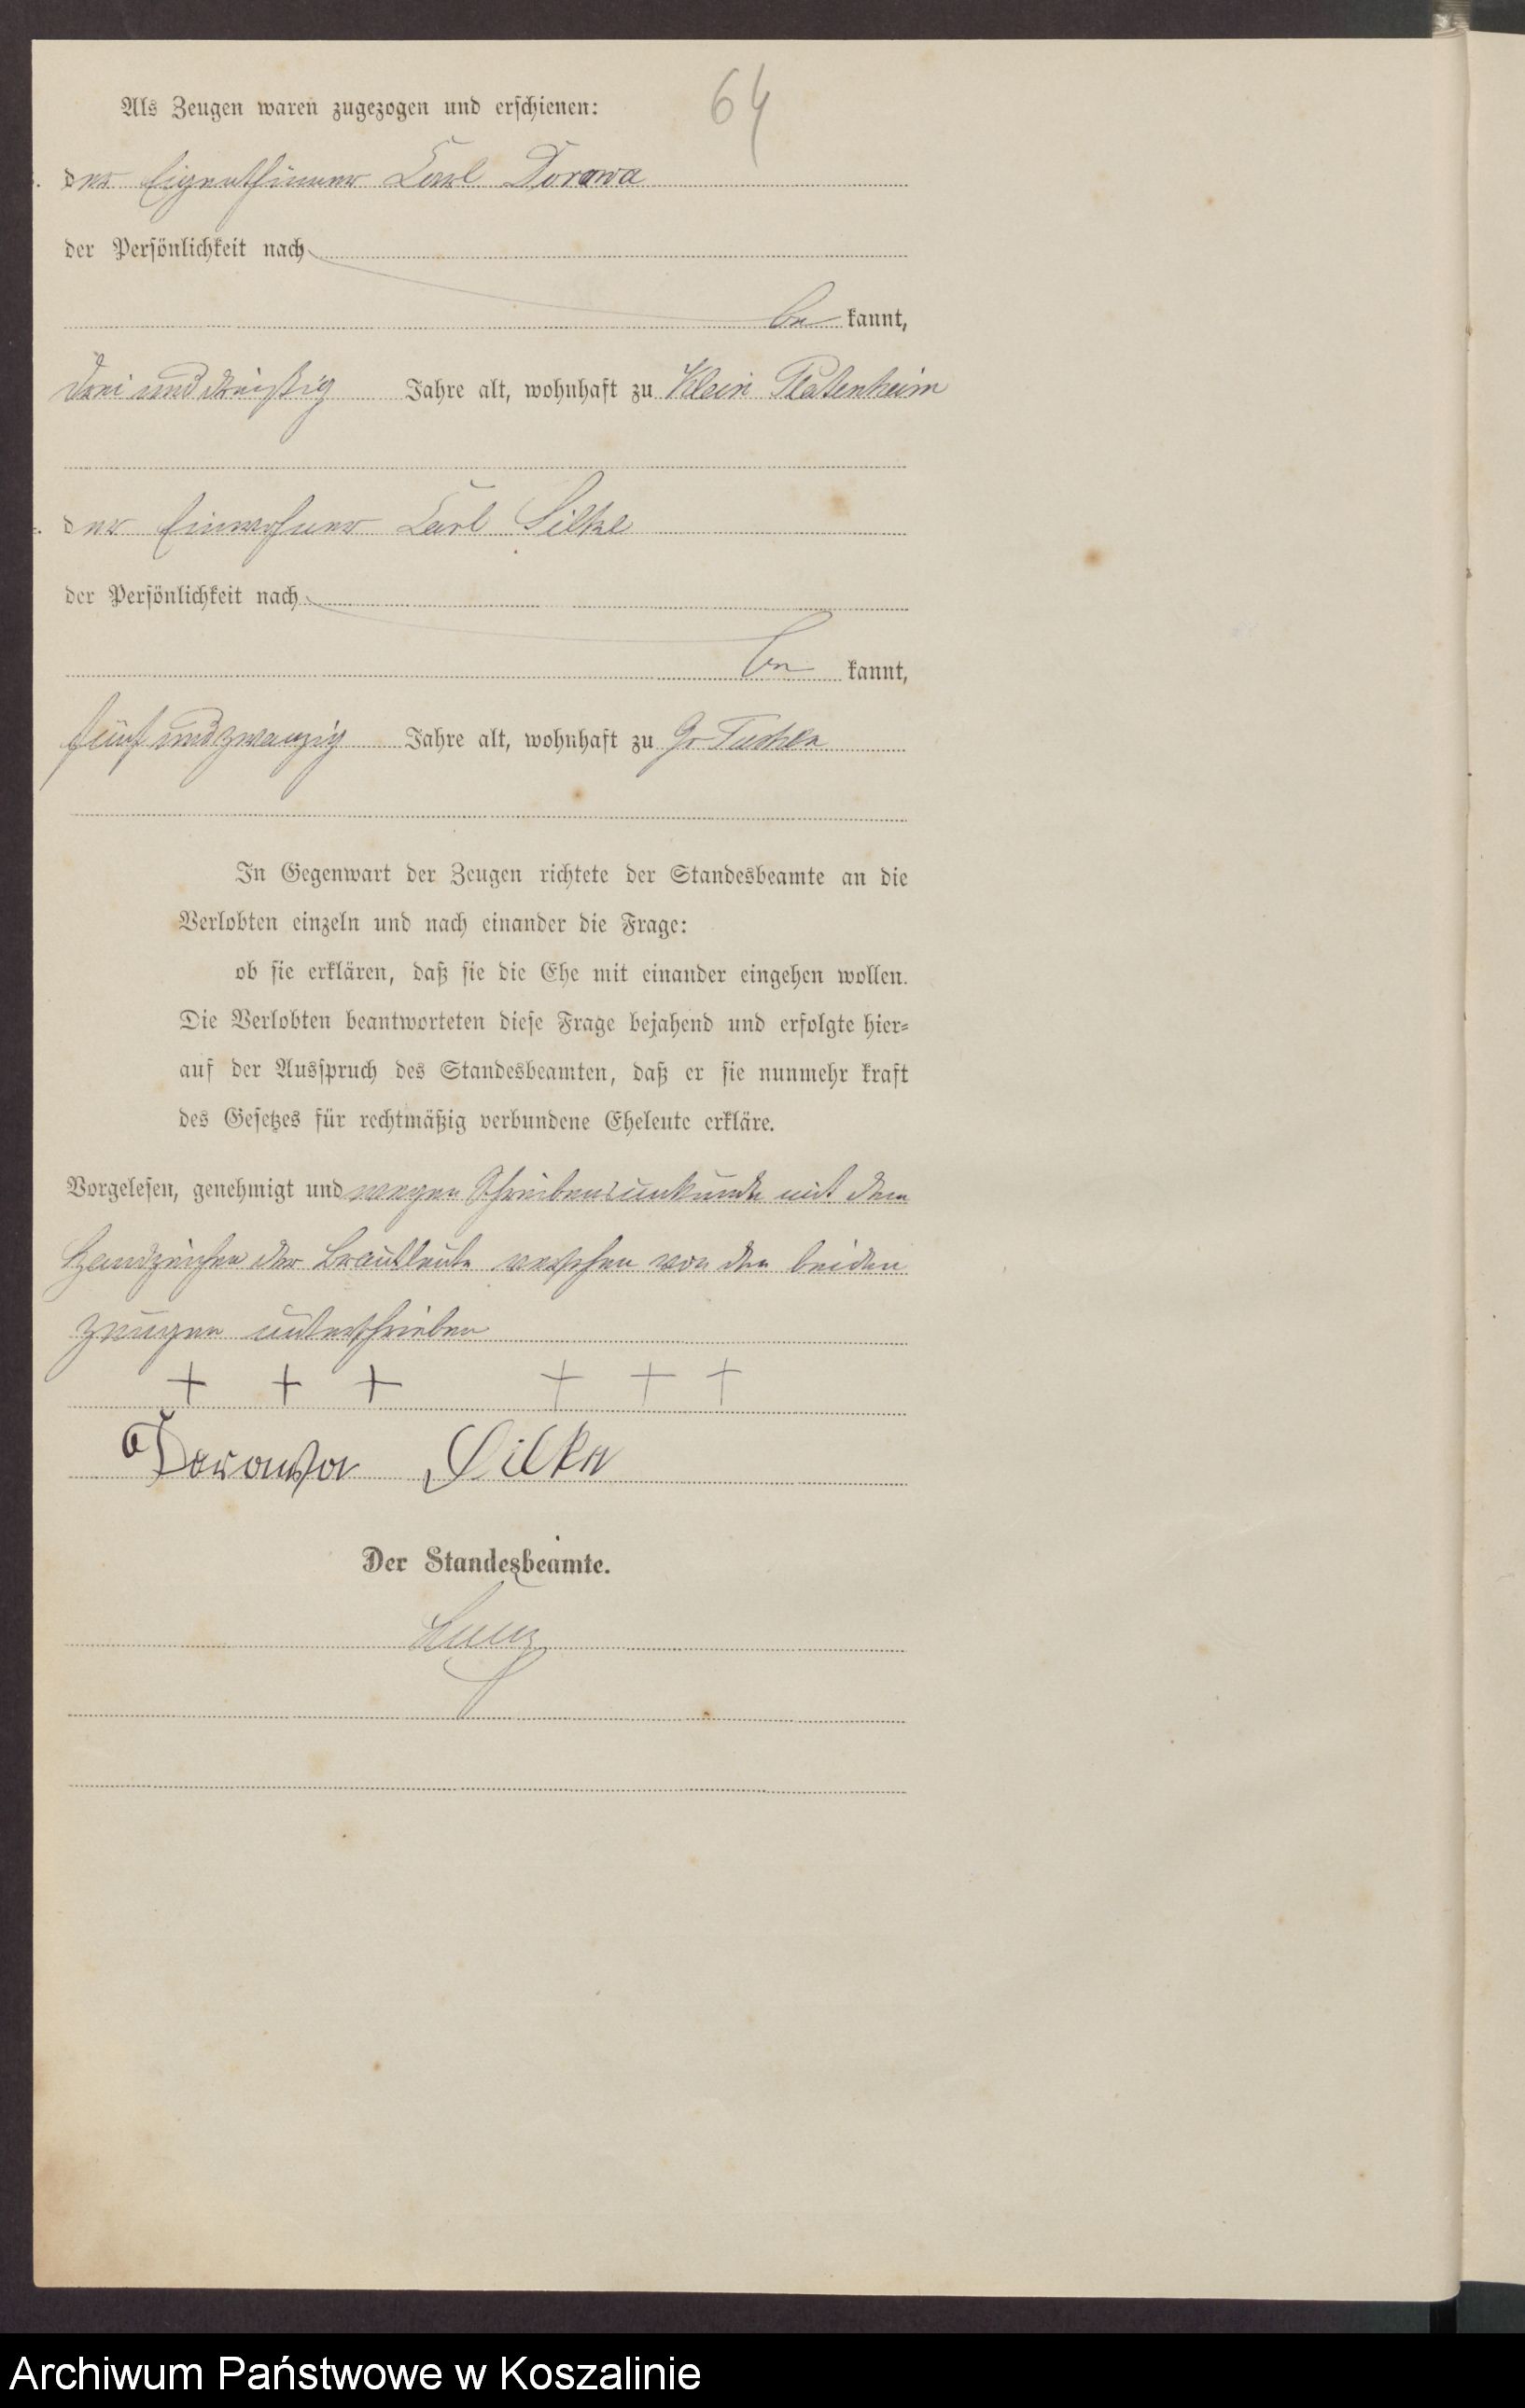 64
Als Zeugen waren zugezogen und erschienen:
der Eigenthümer Carl Dorawa
der Persönlichkeit nach
be kannt,
drei und dreißig Jahre alt, wohnhaft zu Klein Platenheim
der Einwohner Carl Silke
der Persönlichkeit nach
be kannt,
fünf und zwanzig Jahre alt, wohnhaft zu Gr Tuchen
In Gegenwart der Zeugen richtete der Standesbeamte an die
Verlobten einzeln und nach einander die Frage:
ob sie erklären, daß sie die Ehe mit einander eingehen wollen.
Die Verlobten beantworteten diese Frage bejahend und erfolgte hier-
auf der Ausspruch des Standesbeamten, daß er sie nunmehr kraft
des Gesetzes für rechtmäßig verbundene Eheleute erkläre.
Vorgelesen, genehmigt und wegen Schreibensunkunde mit dem
Handzeichen der Brautleute versehen von den beiden
Zeugen unterschrieben
+ + + + + +
Dorawa Silke
Der Standesbeamte.
Archiwum Państwowe w Koszalinie